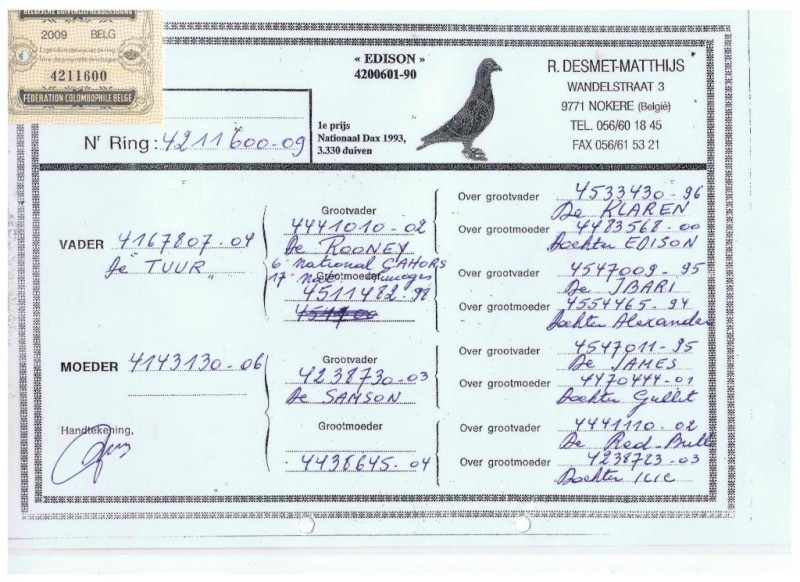 2009 BELG
4211600
FEDERATION COLOMBOPHILE BELGE
Nr Ring: 4211600-09
« EDISON »
4200601-90
1e prijs
Nationaal Dax 1993,
3.330 duiven
R. DESMET-MATTHIJS
WANDELSTRAAT 3
9771 NOKERE (België)
TEL. 056/60 18 45
FAX 056/61 53 21
VADER 4167807-04
De "TUUR"
Grootvader
4441010-02
De ROONEY
6e National CAHORS
17e Limoges
Grootmoeder
4511482-98
Over grootvader 4533430-96
De KLAREN
Over grootmoeder 4483568-00
Dochter EDISON
Over grootvader 4547009-95
De JBARI
Over grootmoeder 4554465-94
Dochter Alexander
MOEDER 4143130-06
Grootvader
4238730-03
De SAMSON
Grootmoeder
4438645-04
Over grootvader 4547011-95
De JAMES
Over grootmoeder 4470444-01
Dochter Gullit
Over grootvader 4441110-02
De Red-Bull
Over grootmoeder 4238723-03
Dochter ILIC
Handtekening,